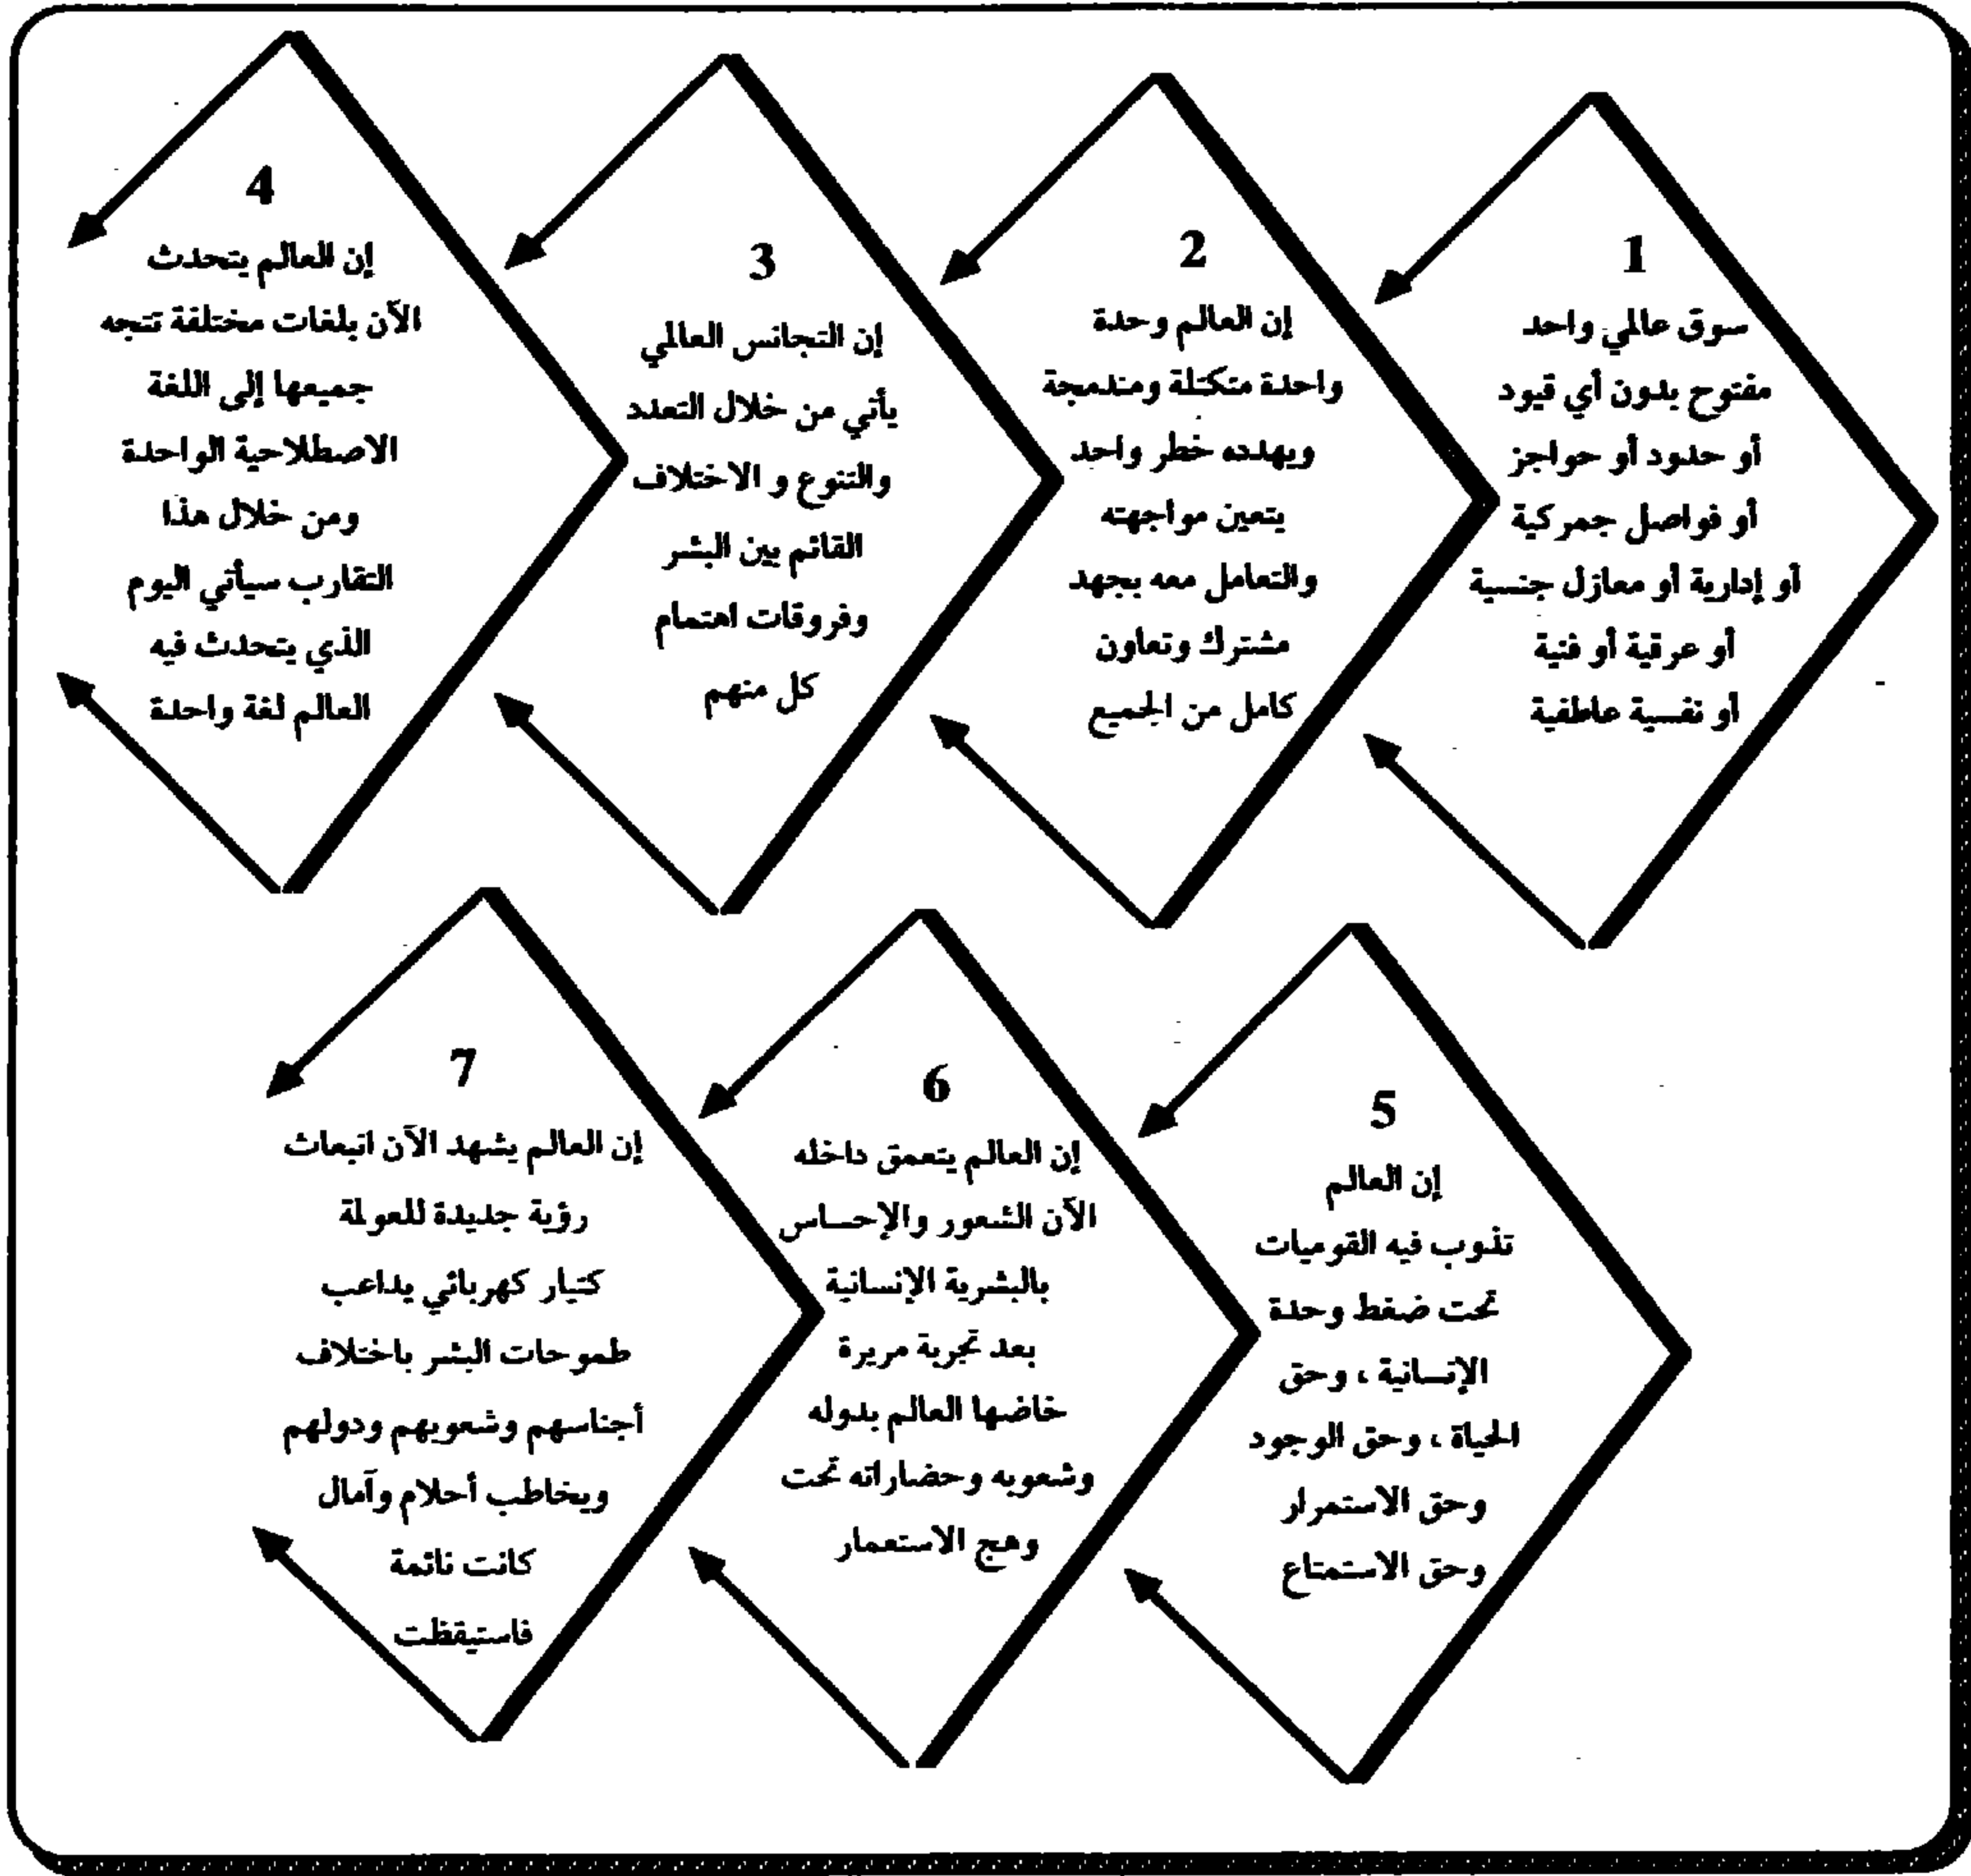 1
سوق عالمي واحد
مفتوح بدون أي قيود
أو حدود أو حواجز
أو فواصل جمركية
أو إدارية أو معازل جنسية
أو عرقية أو فنية
أو نفسية عاطفية
2
إن العالم وحدة
واحدة متكتلة ومندمجة
ويهدده خطر واحد
يتعين مواجهته
والتعامل معه بجهد
مشترك وتعاون
كامل من الجميع
3
إن التجانس العالمي
يأتي من خلال التعدد
والتنوع و الاختلاف
القائم بين البشر
وفروقات اهتمام
كل منهم
4
إن العالم يتحدث
الآن بلغات مختلفة تتجه
جميعها إلى اللغة
الاصطلاحية الواحدة
ومن خلال هذا
التقارب سيأتي اليوم
الذي يتحدث فيه
العالم لغة واحدة
5
إن العالم
تذوب فيه القوميات
تحت ضغط وحدة
الإنسانية ، وحق
الحياة ، وحق الوجود
وحق الاستمرار
وحق الاستمتاع
6
إن العالم يتعمق داخله
الآن الشعور والإحساس
بالبشرية الإنسانية
بعد تجربة مريرة
خاضها العالم بدوله
وشعوبه وحضاراته تحت
وهج الاستعمار
7
إن العالم يشهد الآن انبعاث
رؤية جديدة للعولمة
كتيار كهربائي يداعب
طموحات البشر باختلاف
أجناسهم وشعوبهم ودولهم
ويخاطب أحلام وآمال
كانت نائمة
فاستيقظت